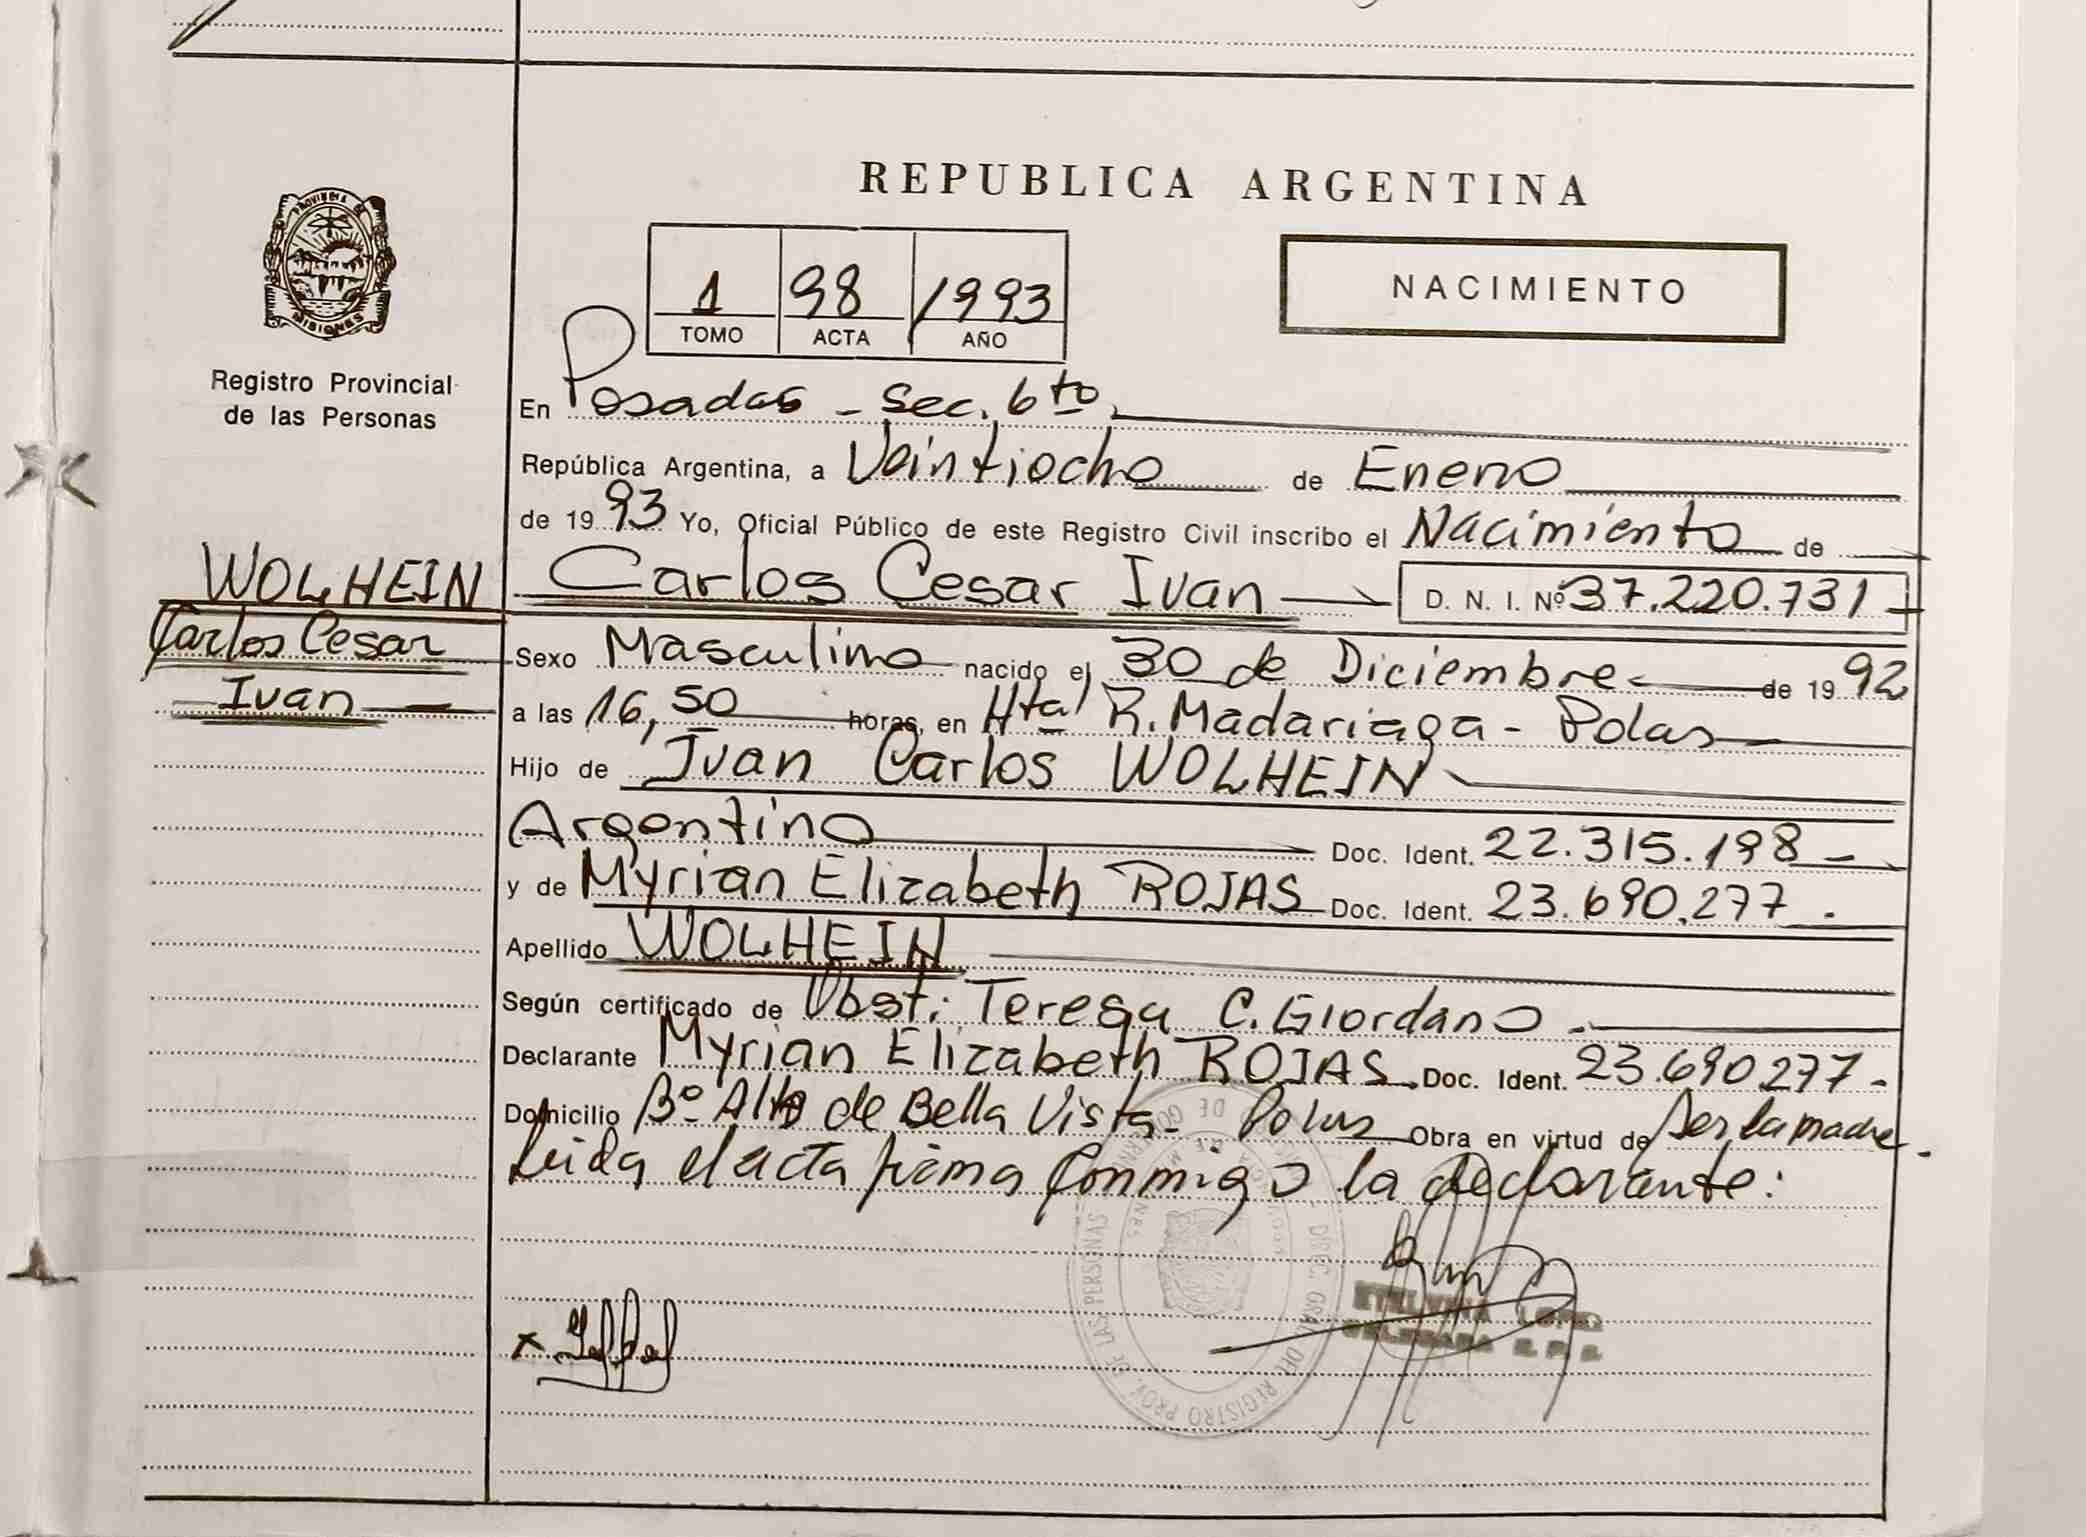 REPUBLICA ARGENTINA
PROVINCIA DE
MISIONES
Registro Provincial
de las Personas
1 98 1993
TOMO ACTA AÑO
NACIMIENTO
En Posadas - Sec. 6to.
República Argentina, a Veintiocho de Enero
de 1993 Yo, Oficial Público de este Registro Civil inscribo el Nacimiento de
WOLHEIN
Carlos Cesar
Ivan
Carlos Cesar Ivan D. N. I. Nº 37.220.731
Sexo Masculino nacido el 30 de Diciembre de 1992
a las 16,50 horas, en Htal R. Madariaga - Pdas
Hijo de Juan Carlos WOLHEIN
Argentino Doc. Ident. 22.315.198
y de Myrian Elizabeth ROJAS Doc. Ident. 23.690.277.
Apellido WOLHEIN
Según certificado de Obst: Teresa C. Giordano.
Declarante Myrian Elizabeth ROJAS. Doc. Ident. 23.690.277-
Domicilio Bº Alto de Bella Vista- Pdas Obra en virtud de Ser la madre.
Leida el acta firma conmigo la declarante:
DIREC. GRAL. DEL REGISTRO PROV. DE LAS PERSONAS